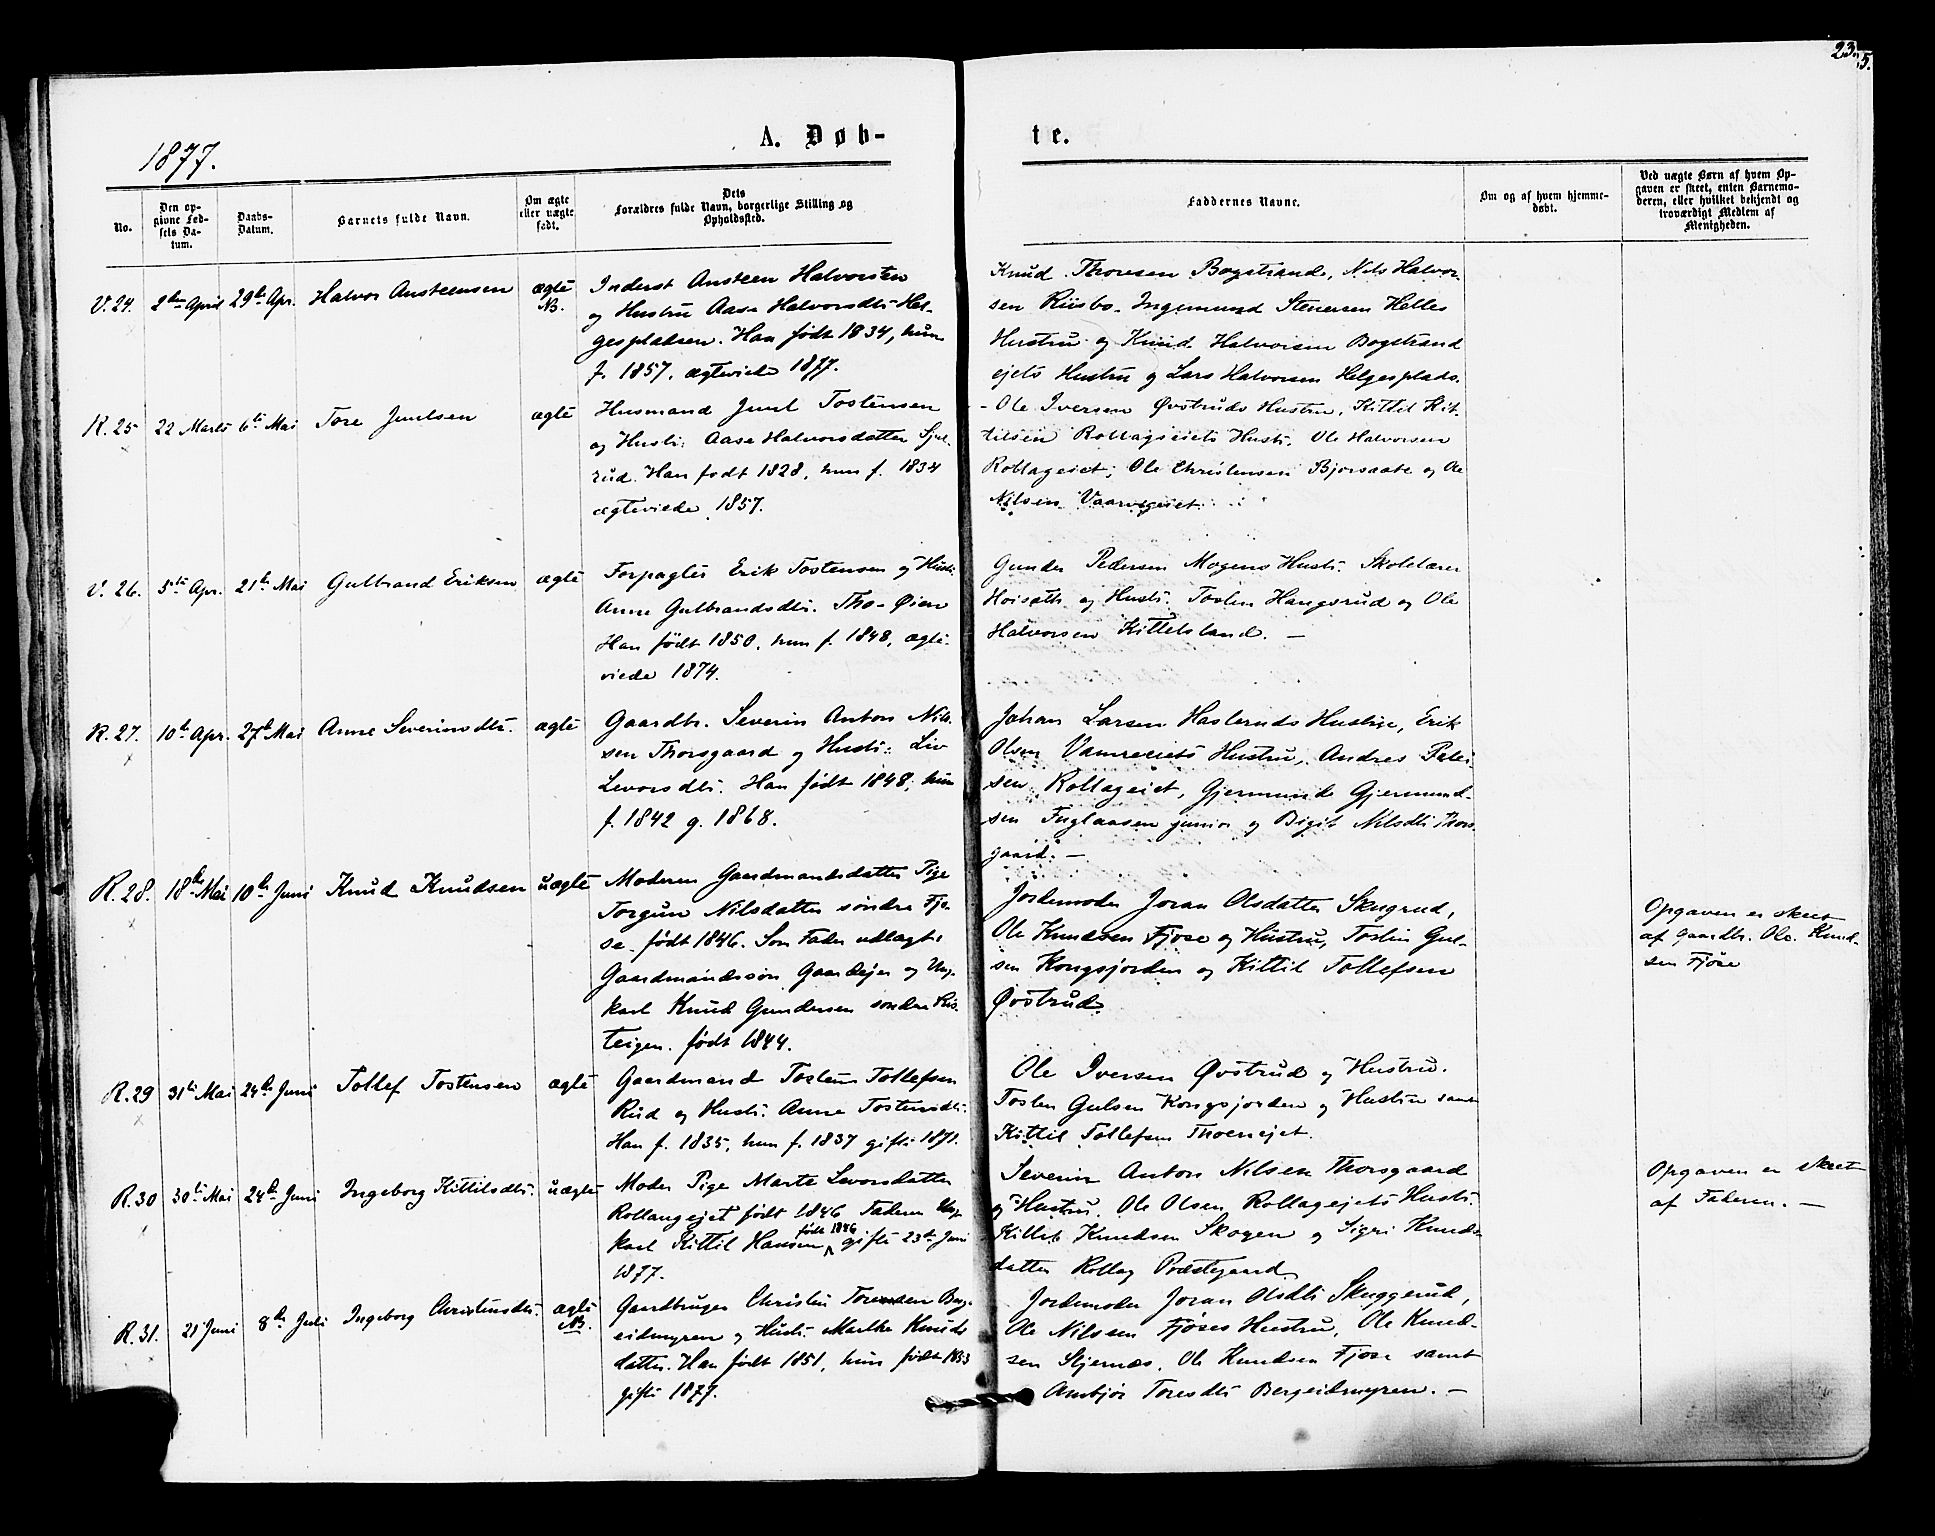 23.
5.
1877.
A. Døb-
te.
No.
Den op-
givne Fød-
sels Da-
tum.
Daabs-
Datum.
Barnets fulde Navn.
Om ægte
eller uægte
født.
Dets
Forældres fulde Navn, borgerlige Stilling og
Opholdssted.
Faddernes Navne.
Om og af hvem hjemme-
døbt.
Ved uægte Børn af hvem Op-
gaven er skeet, enten Barnemo-
deren, eller hvilket bekjendt og
troværdigt Medlem af
Menigheden.
V. 24. 2den April 29de Apr. Halvor Ansteensen ægte
NB.
Inderst Ansteen Halvorsen
og Hustru Aase Halvorsdtr Hel-
gespladsen. Han født 1834, hun
f. 1857, ægteviede 1877.
Knud Thoresen Bogstrands, Nils Halvor-
sen Riisbo. Ingemund Stenersen Helles
Hustru og Knud Halvorsen Bogstrand
ejets Hustru og Lars Halvorsen Helgesplads.
R. 25 22 Marts 6te Mai Tore Juulsen ægte
Husmand Juul Tostensen
og Hustr: Aase Halvorsdatter Sjul-
rud. Han født 1828, hun f. 1834
ægteviede 1857.
- Ole Iversen Øvstruds Hustru, Kittil Kit-
tilsen Rollageiets Hustr. Ole Halvorsen
Rollageiet, Ole Christensen Bjorsaate og Ole
Nilsen Vaarvigeiet.
V. 26. 5te Apr. 21de Mai Gulbrand Eriksen ægte
Forpagter Erik Tostensen og Hustr:
Anne Gulbrandsdtr. Tho-Øien
Han født 1850, hun f. 1848, ægte-
viede 1874.
Gunder Pedersen Mogens Hustr. Skolelærer
Hoisæth og Hustr. Tosten Haugsrud og Ole
Halvorsen Kittelsland. —
R. 27. 10de Apr. 27de Mai Anne Severinsdtr. ægte
Gaardbr. Severin Anton Nils-
sen Thorsgaard og Hustr: Liv
Levorsdtr. Han født 1848, hun
f. 1842 g. 1868.
Johan Larsen Haslerruds Hustru, Erik
Olsen Hustru, Andres Peter
sen Rollageiet, Gjermund Gjermund-
sen Fuglaasen junior og Bigit Nilsdtr Thors-
gaard. —
R. 28. 18de Mai 10de Juni Knud Knudsen uægte
Moderen Gaardmandsdatter Pige
Torgun Nilsdatter søndre Fjø-
se født 1846. Som Fader udlagt:
Gaardmandssøn, Gaardejer og Ung-
karl Knud Gundersen søndre Ris-
teigen. født 1844.
Jordemoder Joran Olsdatter Skugrud,
Ole Knudsen Fjøse og Hustru, Tosten Gul-
sen Kongsjorden og Kittil Tollefsen
Øvstrud.
Opgaven er skeet
af Gaardbr. Ole Knud-
sen Fjøse
R. 29 31te Mai 24de Juni Tollef Tostensen ægte
Gaardmand Tosten Tollefsen
Rud og Hustr: Anne Tostensdtr.
Han f. 1835, hun f. 1837 gifte 1871.
Ole Iversen Øvstrud og Hustru.
Tosten Gulsen Kongsjorden og Hustru samt
Kittil Tollefsen Thoenejet.
R. 30 30te Mai 24de Juni Ingeborg Kittilsdtr. uægte
Moder Pige Marte Levorsdatter
Rollangejet født 1846 Faderen Ung-
født 1846
karl Kittil Hansen gifte 23de Juni
1877.
Severin Anton Nilsen Thorsgaard
og Hustru, Ole Olsen Rollagejets Hustr.
Kittil Knudsen Skogen og Sigri Knuds-
datter Rollag Præstegaard.
Opgaven er skeet
af Faderen. —
R. 31. 21 Juni 8de Juli Ingeborg Christensdtr. ægte
NB.
Gaardbruger Christen Toresen Berg-
eidmyren og Hustr: Marthe Knuds
datter. Han født 1851, hun født 1853
gifte 1877.
Jordemoder Joran Olsdtr Skuggerud,
Ole Nilssen Fjøses Hustru, Ole Knud-
sen Stjernæs, Ole Knudsen Fjøse samt
Anbjør Toresdtr Bergeidmyren. —